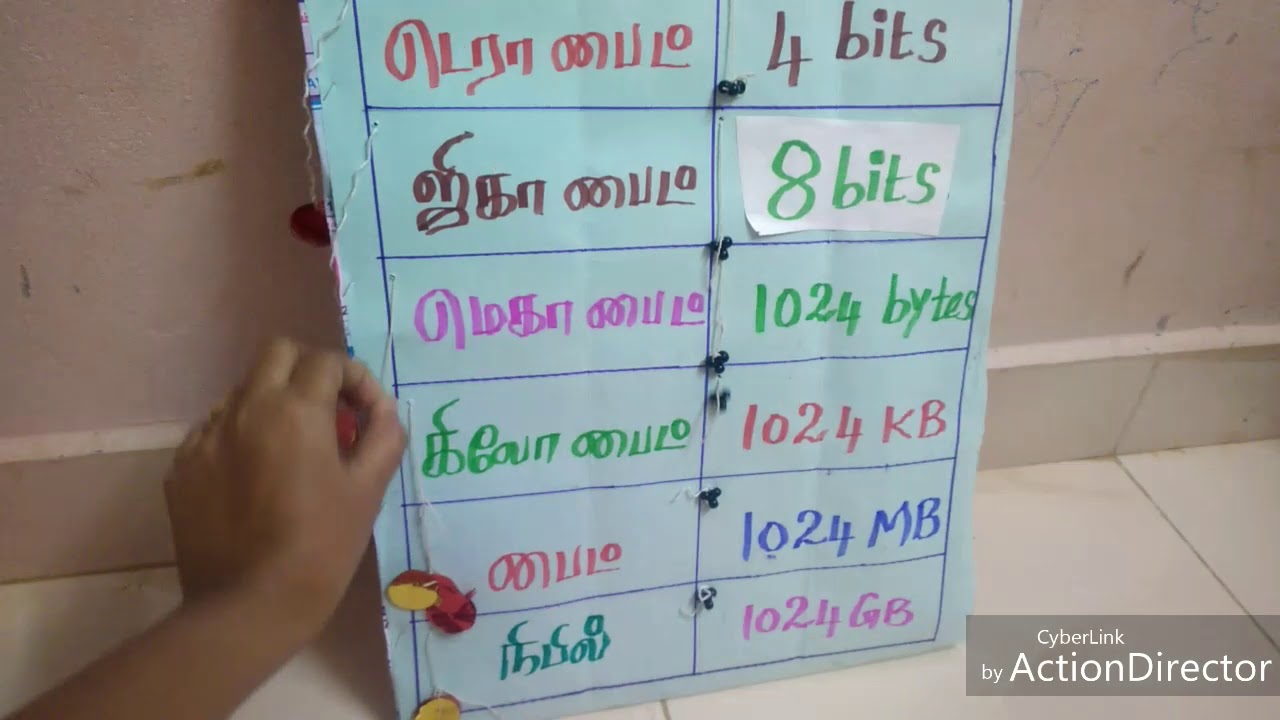 டெரா பைட் 4 bits
ஜிகா பைட் 8 bits
மெகா பைட் 1024 bytes
கிலோ பைட் 1024 KB
பைட் 1024 MB
நிபில் 1024 GB
CyberLink
by ActionDirector